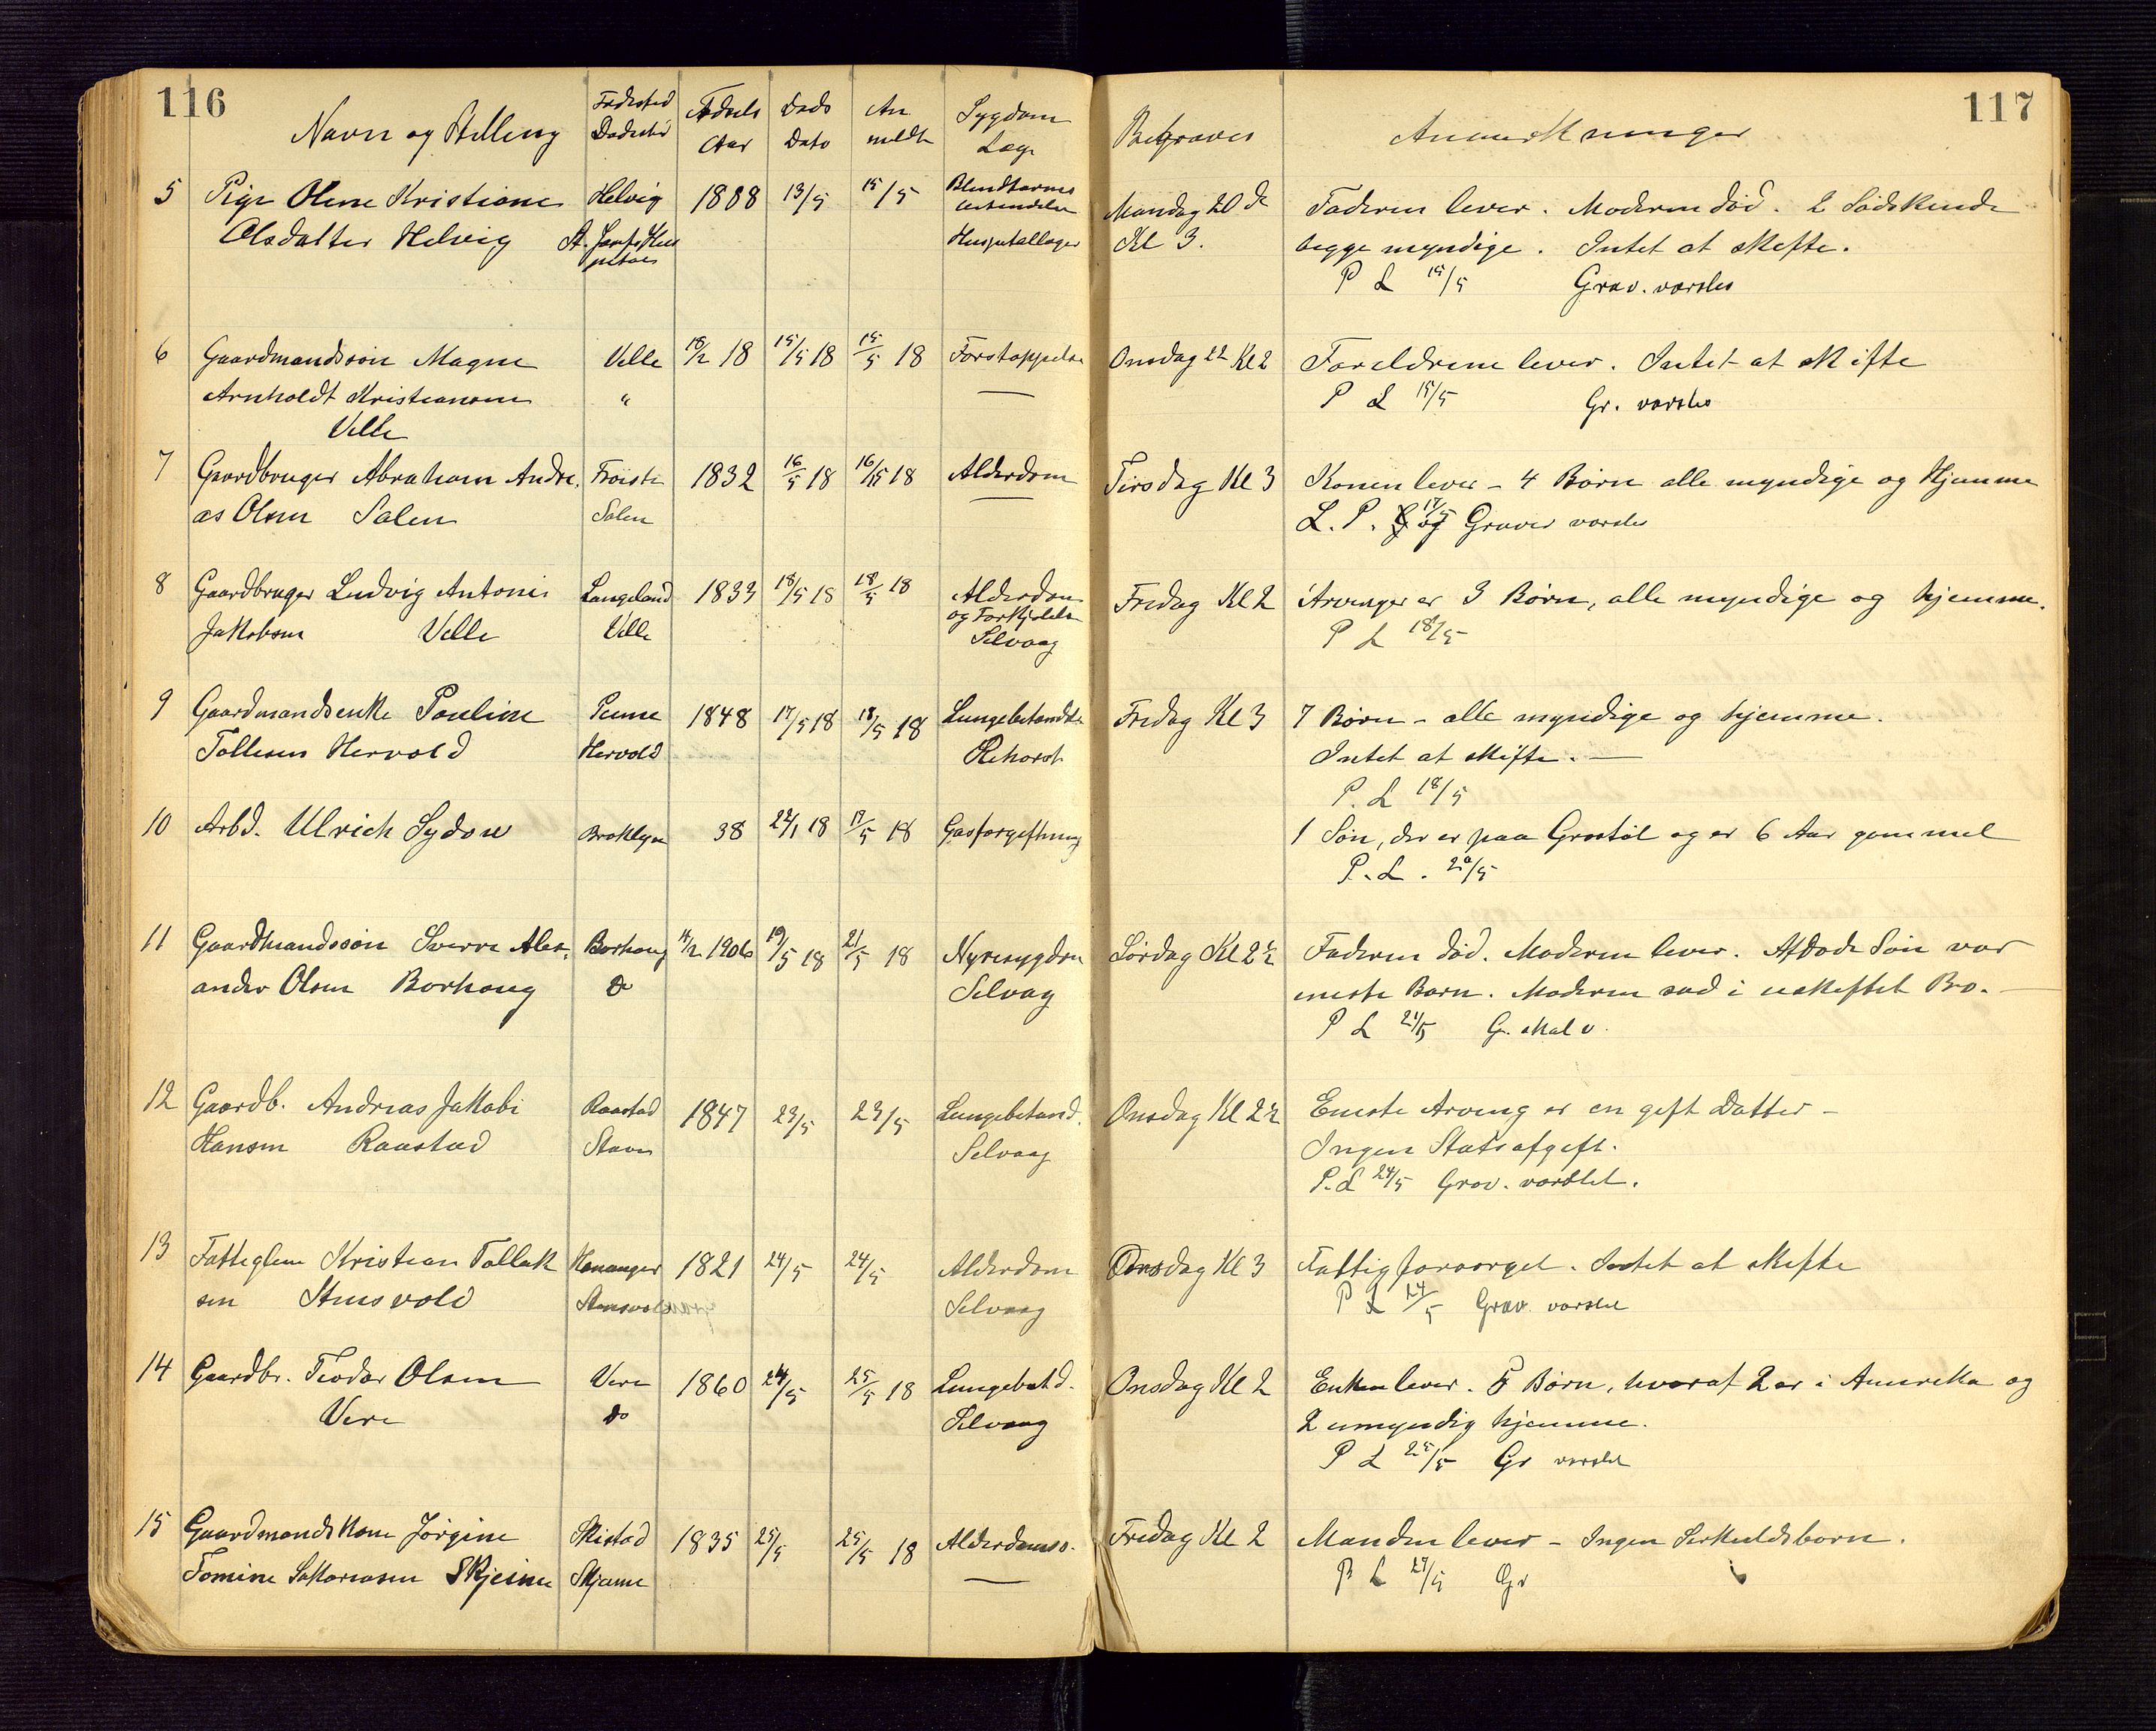 116
117
Navn og Stilling Fødested Dødssted Fødsels Aar Døds Dato An meldt Sygdom Læge Begraves Anmerkninger
5 Pige Olene Kristiane Helvig 1888 13/5 15/5 Blindtarms Mandag 20de Faderen lever. Moderen død. 2 Sødskende
Olsdatter Helvig St. Josefs Hos Hospitallæger Kl 3. begge myndige. Intet at skifte.
P L 15/5 Grav. varsles
6 Gaardmandssøn Magne Velle 18/2 18 15/5 18 15/5 18 Forstoppelse Onsdag 22 Kl 2 Foreldrene lever. Intet at skifte
Arnholdt Kristiansen " — P L 15/5 Gr. varsles
Velle
7 Gaardbruger Abraham Andre. Frøisti 1832 16/5 18 16/5 18 Alderdom Tirsdag Kl 3 Konen lever - 4 Børn alle myndige og Hjemme
as Olsen Salen Salen — L. P. 17/5 og Graver varsles
8 Gaardbruger Ludvig Antoni Langeland 1833 18/5 18 18/5 18 Alderdom Fredag Kl 2 Arvinger er 3 Børn, alle myndige og hjemme.
Jakobsen Velle Velle og Forkjølelse P L 18/5
Selvaag
9 Gaardmandsenke Pauline Penne 1848 17/5 18 18/5 18 Lungebetændelse Fredag Kl 3 7 Børn - alle myndige og hjemme.
Tollesen Hervold Hervold Rehorst Intet at skifte. —
P. L 18/5
10 Arbd. Ulrich Sydow Broklyn 38 22/1 18 17/5 18 Gasforgiftning 1 Søn, der er paa Grostøl og er 6 Aar gammel
P. L. 20/5
11 Gaardmandssøn Sverre Alex. Borhaug 4/2 1906 19/5 18 21/5 18 Nyresygdom Lørdag Kl 2½ Faderen død. Moderen lever. Afdøde Søn var
ander Olsen Borhaug Do Selvaag eneste Barn. Moderen sad i uskiftet Bo. —
P L 21/5 G. skal v.
12 Gaardb. Andreas Jakobi Raastad 1847 23/5 23/5 Lungebetænd. Onsdag Kl 2½ Eneste Arving er en gift Datter -
Hansen Raastad Stave Selvaag Ingen Statsafgift.
P. L 24/5 Grav. varslet.
13 Fattiglem Kristian Tollak Hananger 1821 24/5 24/5 Alderdom Onsdag Kl 3 Fattigforsørget. Intet at skifte
sen Stensvold Stensvold Selvaag P L 24/5 Grav varslet
14 Gaardbr. Teodor Olsen Vere 1860 24/5 25/5 18 Lungebetd. Onsdag Kl 2 Enken lever. 5 Børn, hvoraf 2 er i Amerika og
Vere Do Selvaag 2 umyndig hjemme.
P L 25/5 Gr varslet
15 Gaardmandskone Jørgine Skistad 1835 25/5 25/5 18 Alderdomss. Fredag Kl 2 Manden lever - Ingen Serkuldsbørn.
Tomine Sakariasen Skjeime — P L 27/5 Gr